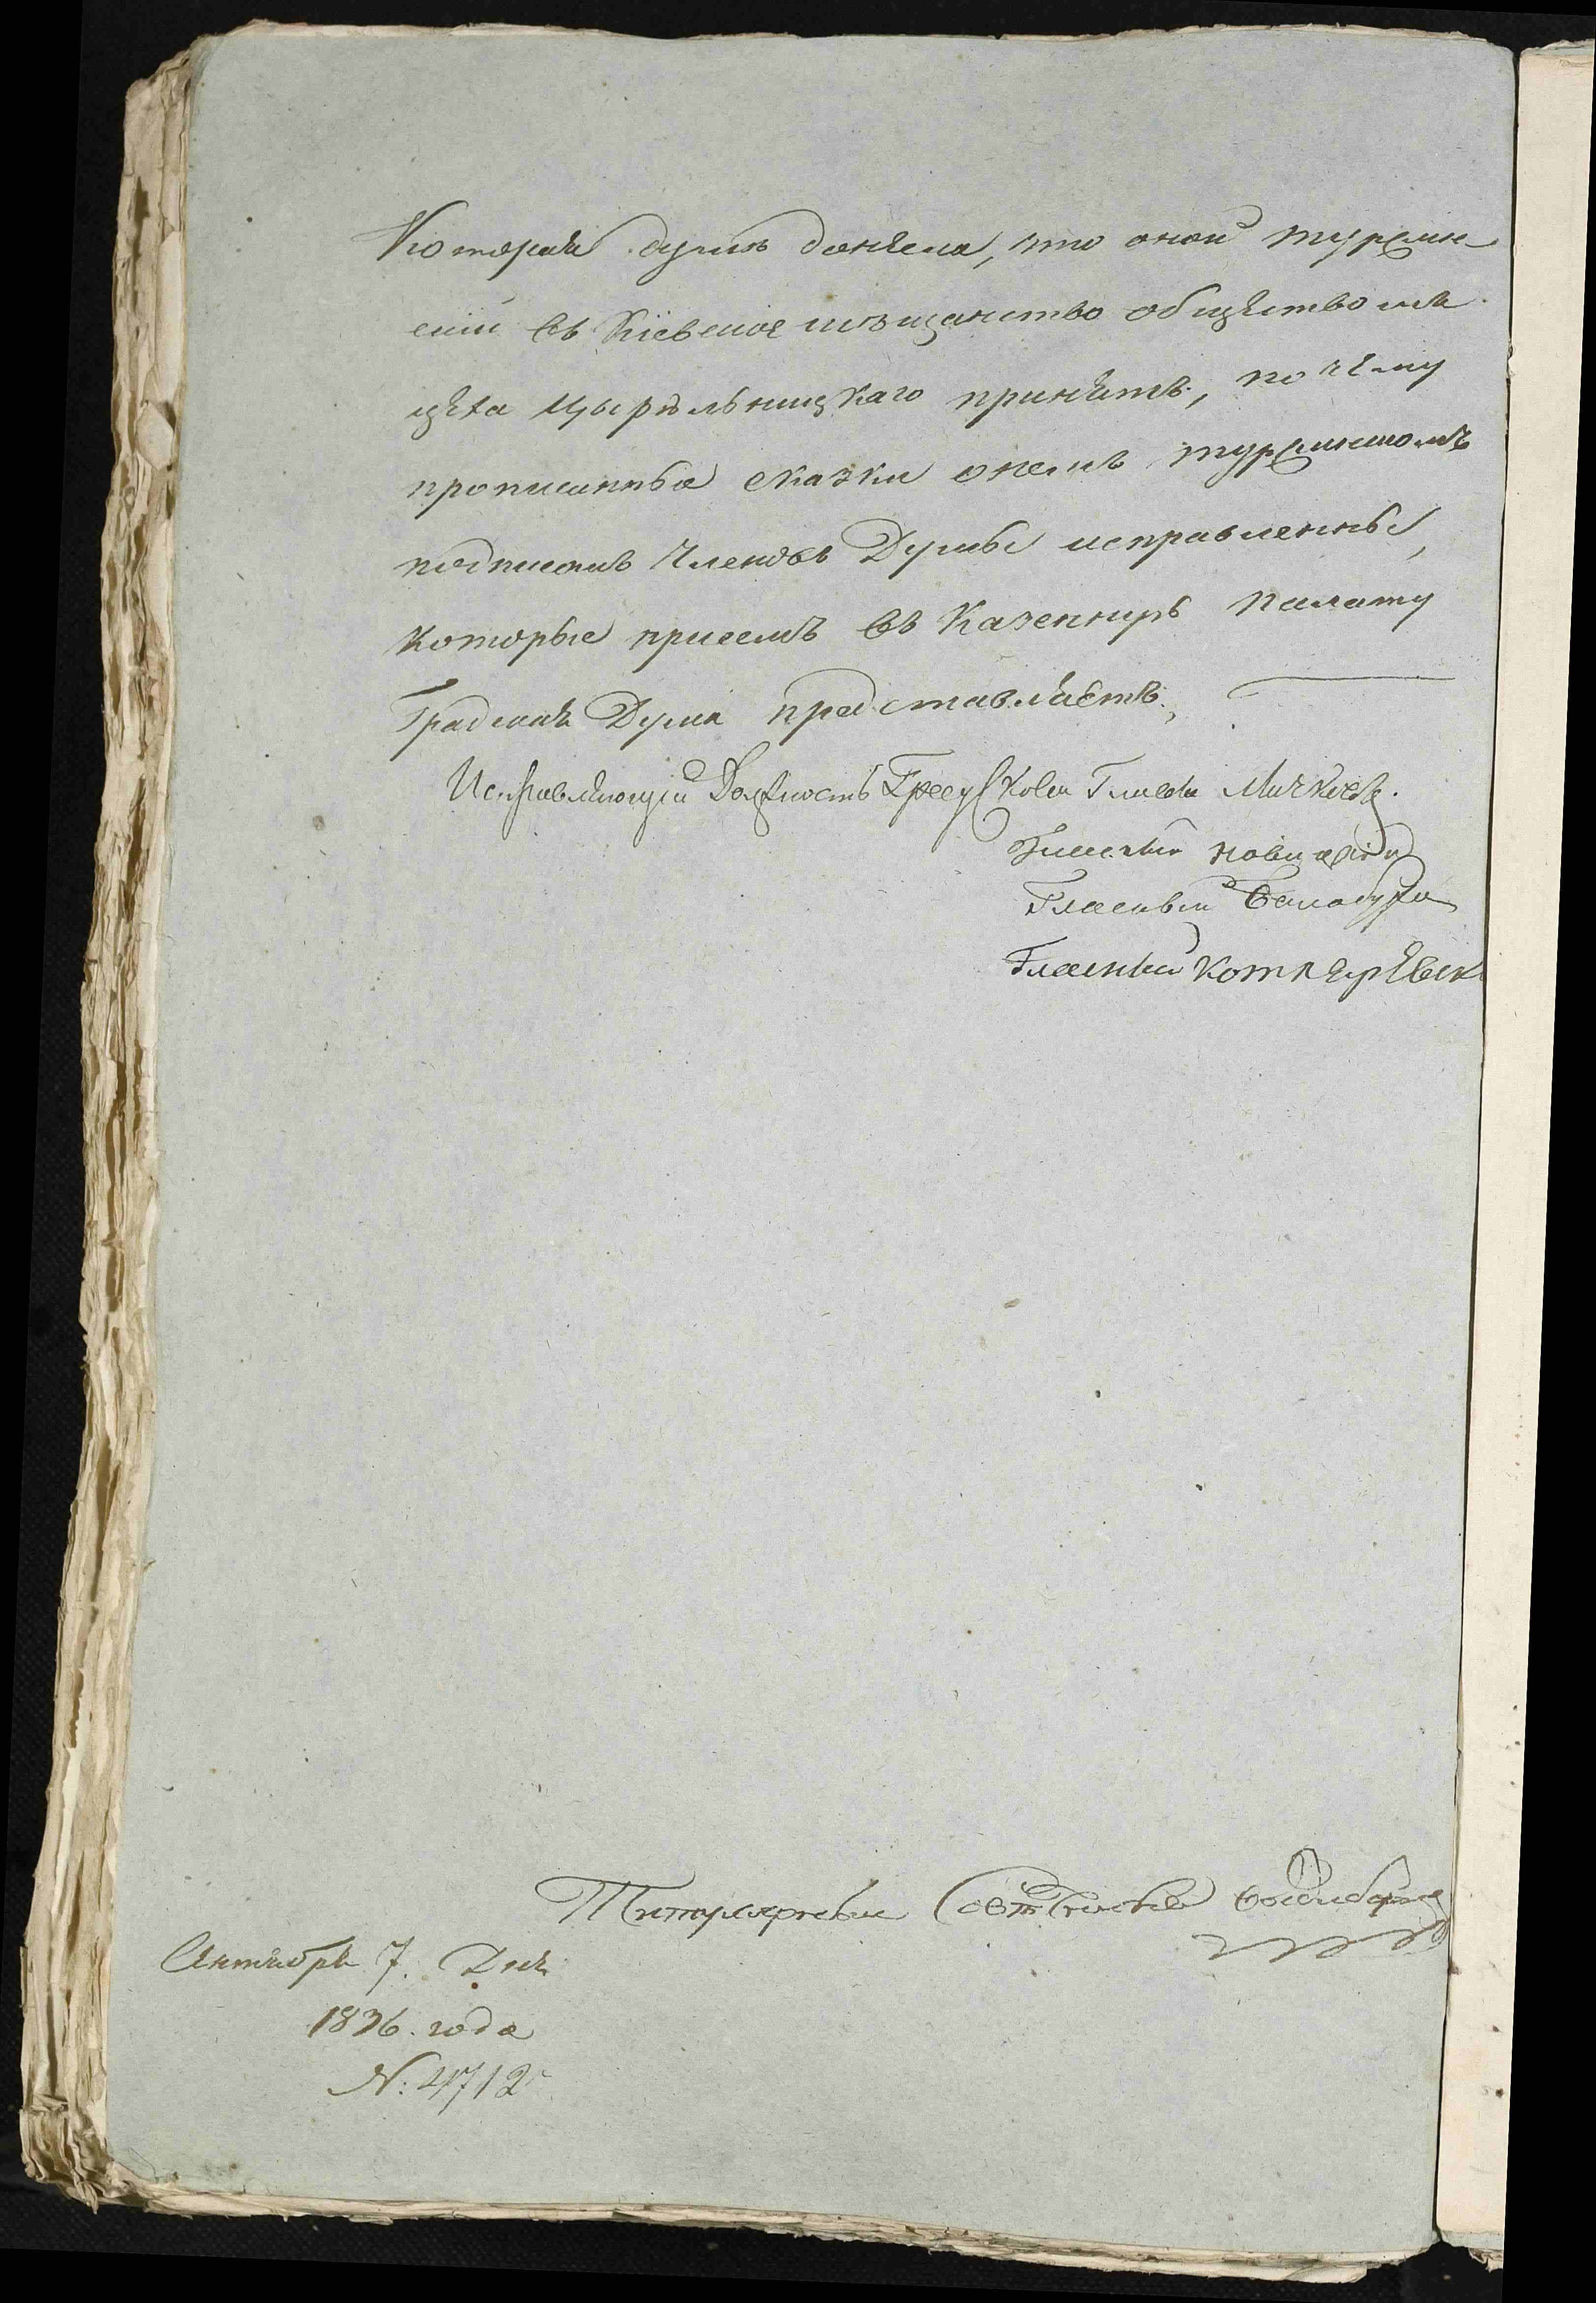 Которая думѣ донесла, что оной Турсмин
скій въ Кіевское мѣщанство обществомъ
цеха Цырюльницкаго принятъ, почему
прописанные сказки онемъ Турсминскомъ
подписомъ Членовъ Думы исправленные,
которые присемъ въ Казенную палату
Градская Дума представляетъ.
Исправляющій Должность Градскова Главы
Гласный Новицкій
Гласный Балабуха
Гласный Котляревск
Титулярный Совѣтникъ
Октября 7. Дня
1836. года
N: 4712